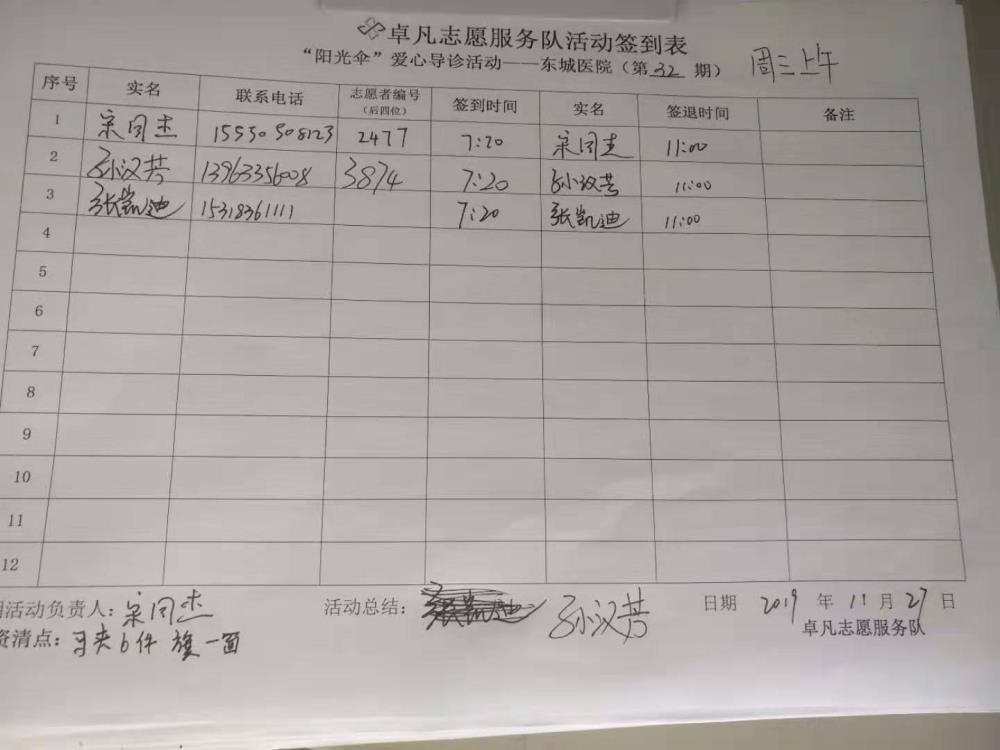 卓凡志愿服务队活动签到表
“阳光伞”爱心导诊活动——东城医院（第32期） 周三上午
序号 实名 联系电话 志愿者编号（后四位） 签到时间 实名 签退时间 备注
1 宋同杰 15550508123 2477 7:20 宋同杰 11:00
2 孙汉芳 13963356008 3874 7:20 孙汉芳 11:00
3 张凯迪 15318361111 7:20 张凯迪 11:00
4
5
6
7
8
9
10
11
12
活动负责人：宋同杰 活动总结： 孙汉芳 日期 2019 年 11 月 27 日
资清点：马夹6件 旗一面 卓凡志愿服务队